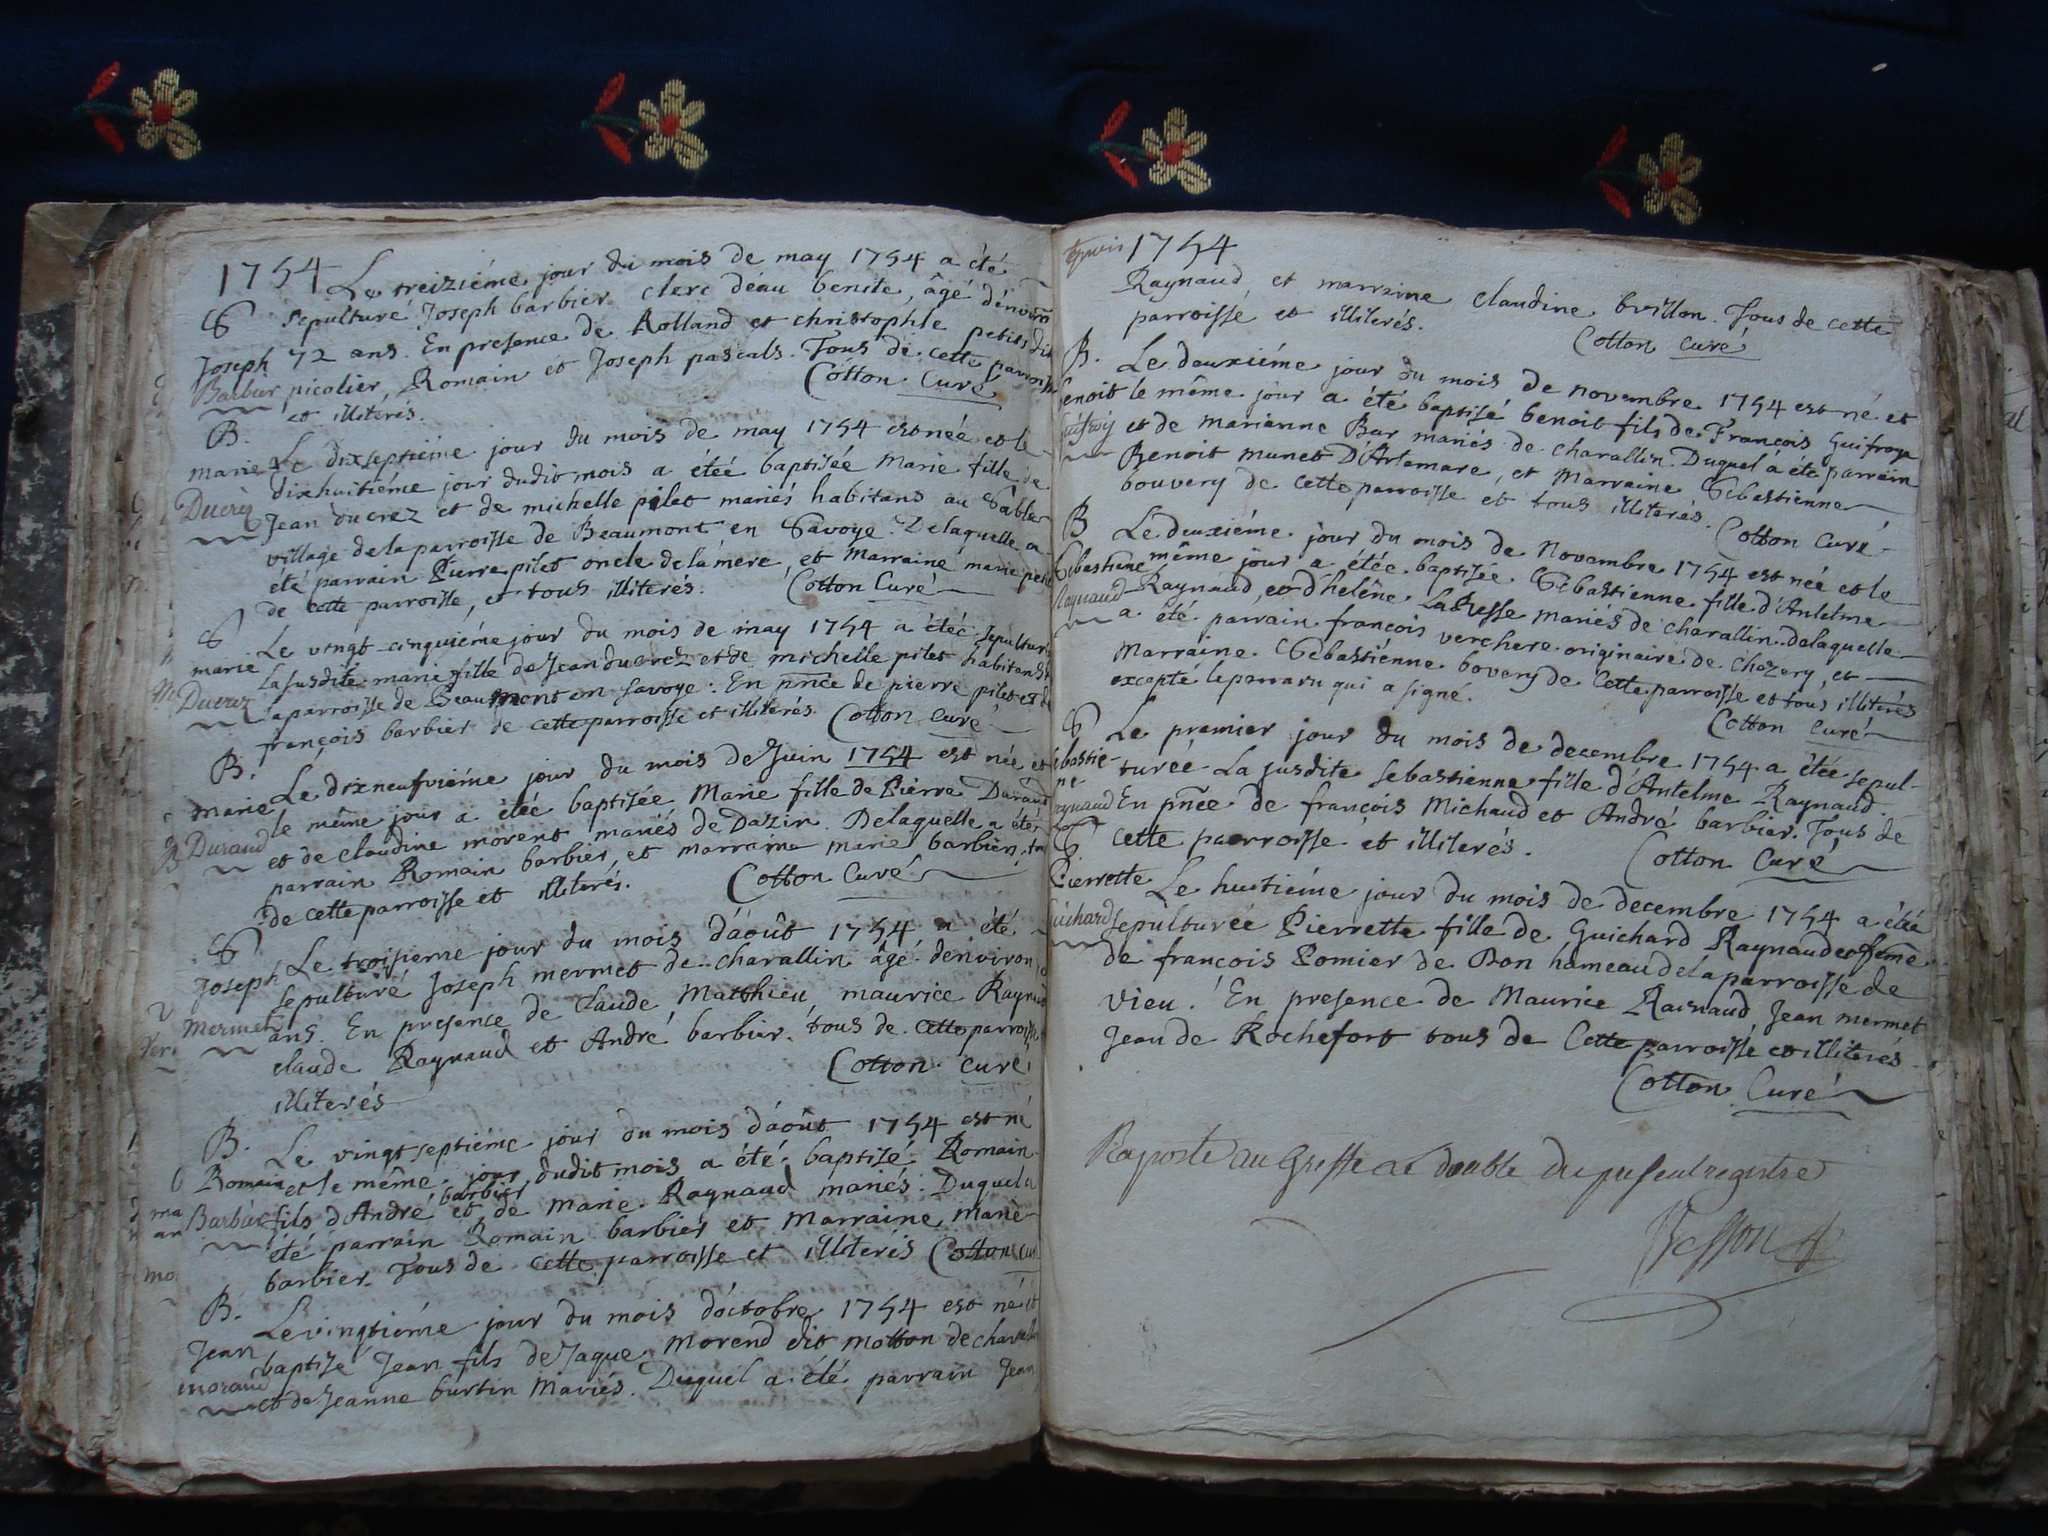 1754 Le treiziéme jour du mois de may 1754 a été
S sepulturé Joseph barbier clerc déau benite, âgé dénviron
Joseph 72 ans. En presence de Rolland et christophle petits dit
Barbier picolier, Romain et Joseph pascals. Tous de cette parroisse
et illiterés. Cotton Curé
B. Le dixseptiéme jour du mois de may 1754 est née et le
marie dixhuitiéme jour dudit mois a étéé baptisée Marie fille de
Ducrez Jean ducrez et de michelle pilet mariés habitans au Sable
village de la parroisse de Beaumont en Savoye. Delaquelle a
été parrain Pierre pilet oncle de la mére, et Marraine marie petit
de cette parroisse, et tous illiterés. Cotton Curé
S Le vingt cinquiéme jour du mois de may 1754 a étéé sepulturée
marie La susdite marie fille de Jean ducrez et de michelle pilet habitans de
Ducrez la parroisse de Beaumont en Savoye. En pñce de pierre pilet et de
françois barbier de cette parroisse et illiterés Cotton Curé
B. Le dixneufviéme jour du mois de Juin 1754 est née et
Marie le même jour a étéé baptisée Marie fille de Pierre Durand
Durand et de claudine morent mariés de Dazin. Delaquelle a été
parrain Romain barbier, et marraine marie barbier, tous
de cette parroisse et illiterés. Cotton Curé
S Le troisieme jour du mois d'áoût 1754 a été
Joseph sepulturé Joseph mermet de charallin âgé denviron
Mermet ans. En presence de Claude Matthieu, maurice Raynaud
claude Raynaud et André barbier. tous de cette parroisse
illiterés Cotton Curé
B. Le vingtseptiéme jour du mois d'áoût 1754 est né
Romain et le même jour dudit mois a été baptisé Romain
Barbier fils d'André barbier et de marie Raynaud mariés. Duquel a
été parrain Romain barbier et Marraine marie
barbier. Tous de cette parroisse et illiterés Cotton Curé
B. Le vingtiéme jour du mois d'octobre 1754 est né et
Jean baptisé Jean fils de Jaque Morend dit motton de charallin
morand et de Jeanne burtin Mariés. Duquel a été parrain Jean
1754
Raynaud, et marraine claudine brillon. Tous de cette
parroisse et illiterés. Cotton Curé
B. Le deuxiéme jour du mois de novembre 1754 est né et
benoit le même jour a été baptisé benoit fils de François Guifroy
guifroy et de marianne Bar mariés de charallin. Duquel á été parrain
Benoit munet D'Artemare, et Marraine Sebastienne
bouvery de cette parroisse et tous illiterés. Cotton Curé
B Le deuxiéme jour du mois de Novembre 1754 est neé et le
Sebastiene même jour a étéé baptisée Sebastienne fille d'Antelme
Raynaud Raynaud, et d'helêne LaResse mariés de charallin. delaquelle
a été parrain françois verchere originaire de Chezery, et
Marraine Sebastienne bovery de cette parroisse et tous illiterés
excepté le parrain qui a signé. Cotton Curé
S Le premier jour du mois de decembre 1754 a étée sepul-
sebastie turéé La susdite sebastienne fille d'Antelme Raynaud.
ne
Raynaud En pñce de françois Michaud et André barbier. Tous de
cette parroisse et illiterés. Cotton Curé
S
Pierrette Le huitiéme jour du mois de decembre 1754 a étéé
Guichard sepulturée Pierrette fille de Guichard Raynaud et feme
de françois Pomier de Bon hameau de la parroisse de
vieu. En presence de Maurice Raynaud Jean mermet
Jean de Rochefort tous de cette parroisse et illiterés
Cotton Curé
Raporté au Greffe le double du présent registre